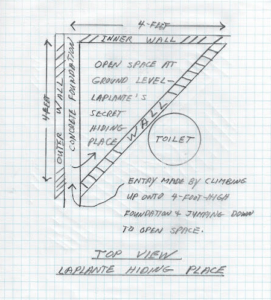 4-FEET
INNER WALL
4-FEET
OUTER WALL
CONCRETE FOUNDATION
OPEN SPACE AT
GROUND LEVEL—
LAPLANTE'S
SECRET
HIDING
PLACE
WALL
TOILET
ENTRY MADE BY CLIMBING
UP ONTO 4-FOOT-HIGH
FOUNDATION & JUMPING DOWN
TO OPEN SPACE.
TOP VIEW
LAPLANTE HIDING PLACE